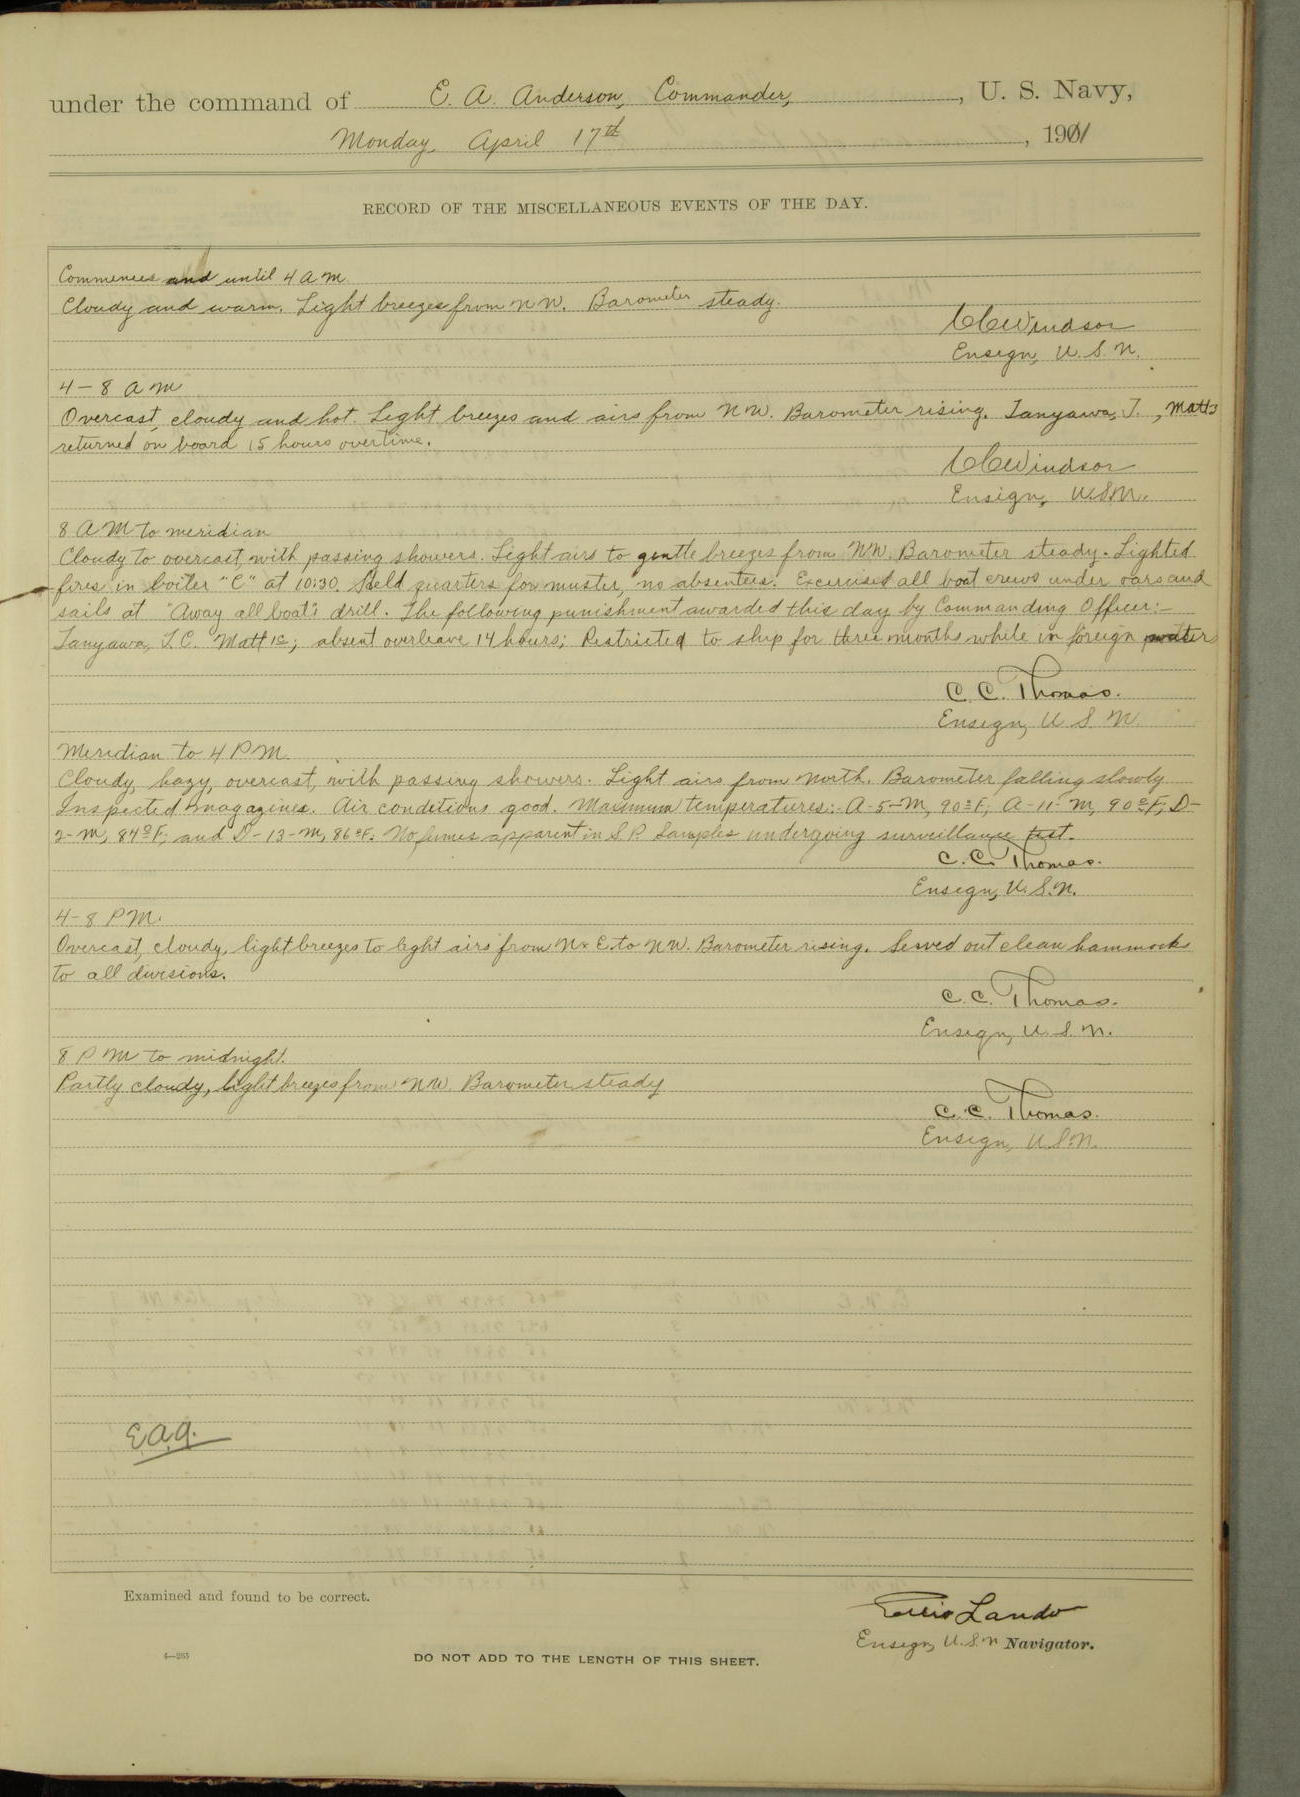 under the command of E. A. Anderson, Commander, , U. S. Navy,
Monday April 17th , 1911
RECORD OF THE MISCELLANEOUS EVENTS OF THE DAY.
Commences and until 4 A M
Cloudy and warm. Light breezes from N W. Barometer steady.
C C Windsor
Ensign, U. S. N.
4 – 8 A M
Overcast, cloudy and hot. Light breezes and airs from N W. Barometer rising. Tanyawa, T. , Matt
returned on board 15 hours overtime.
C C Windsor
Ensign, U. S. N.
8 A M to meridian
Cloudy to overcast, with passing showers. Light airs to gentle breezes from NW. Barometer steady. Lighted
fires in boiler "C" at 10:30. Held quarters for muster, no absentees. Exercised all boat crews under oars and
sails at "Away all boats" drill. The following punishment awarded this day by Commanding Officer:–
Tanyawa, T.C. Matt 1c; absent overleave 14 hours; Restricted to ship for three months while in foreign
C. C. Thomas.
Ensign, U S N
Meridian to 4 P M.
Cloudy, hazy, overcast, with passing showers. Light airs from North. Barometer falling slowly
Inspected magazines. Air conditions good. Maximum temperatures:- A-5-M, 90°F; A-11-M, 90°F; D-
2-M, 84°F; and D-13-M, 86°F. No fumes apparent in S.P. Samples undergoing surveillance test.
C. C. Thomas.
Ensign, U. S. N.
4-8 P M.
Overcast, cloudy, light breezes to light airs from N x E. to NW. Barometer rising. Served out clean hammocks
to all divisions.
C. C. Thomas.
Ensign, U. S. N.
8 P M to midnight.
Partly cloudy, light breezes from NW. Barometer steady
C. C. Thomas.
Ensign, U. S. N.
E.A.A.
Examined and found to be correct.
Ellis Lando
Ensign, U. S. N Navigator.
4—265
DO NOT ADD TO THE LENGTH OF THIS SHEET.